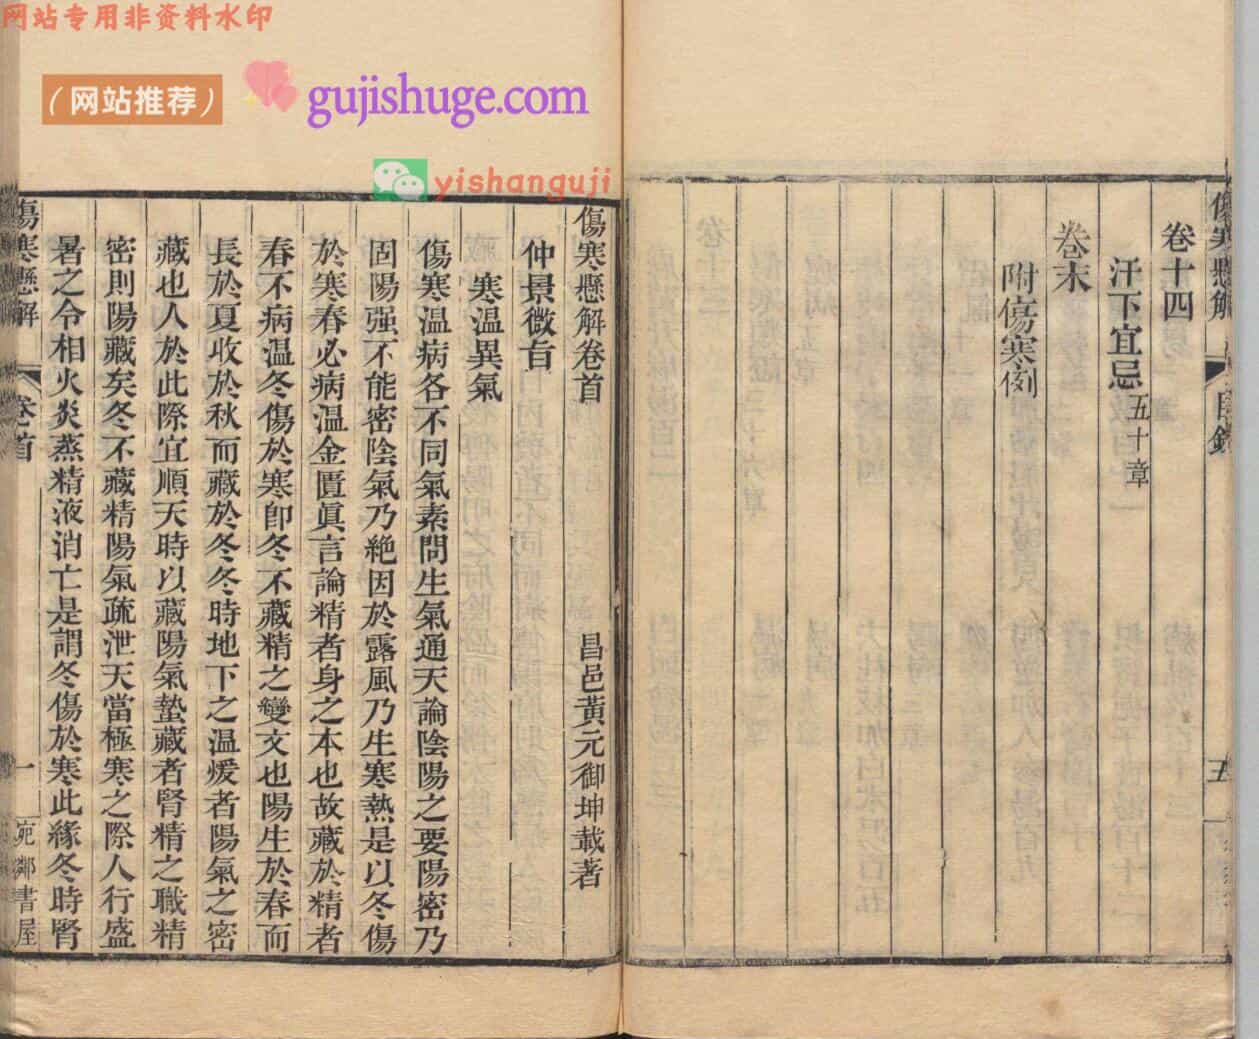 网站专用非资料水印
（网站推荐）
gujishuge.com
yishanguji
傷寒懸解
目錄
五
卷十四
汗下宜忌五十章
卷末
附傷寒例
傷寒懸解卷首
昌邑黃元御坤載著
仲景微旨
寒溫異氣
傷寒溫病各不同氣素問生氣通天論陰陽之要陽密乃
固陽强不能密陰氣乃絶因於露風乃生寒熱是以冬傷
於寒春必病溫金匱眞言論精者身之本也故藏於精者
春不病溫冬傷於寒卽冬不藏精之變文也陽生於春而
長於夏收於秋而藏於冬冬時地下之溫煖者陽氣之密
藏也人於此際宜順天時以藏陽氣蟄藏者腎精之職精
密則陽藏矣冬不藏精陽氣疏泄天當極寒之際人行盛
暑之令相火炎蒸精液消亡是謂冬傷於寒此緣冬時腎
傷寒懸解
卷首
一
宛鄰書屋